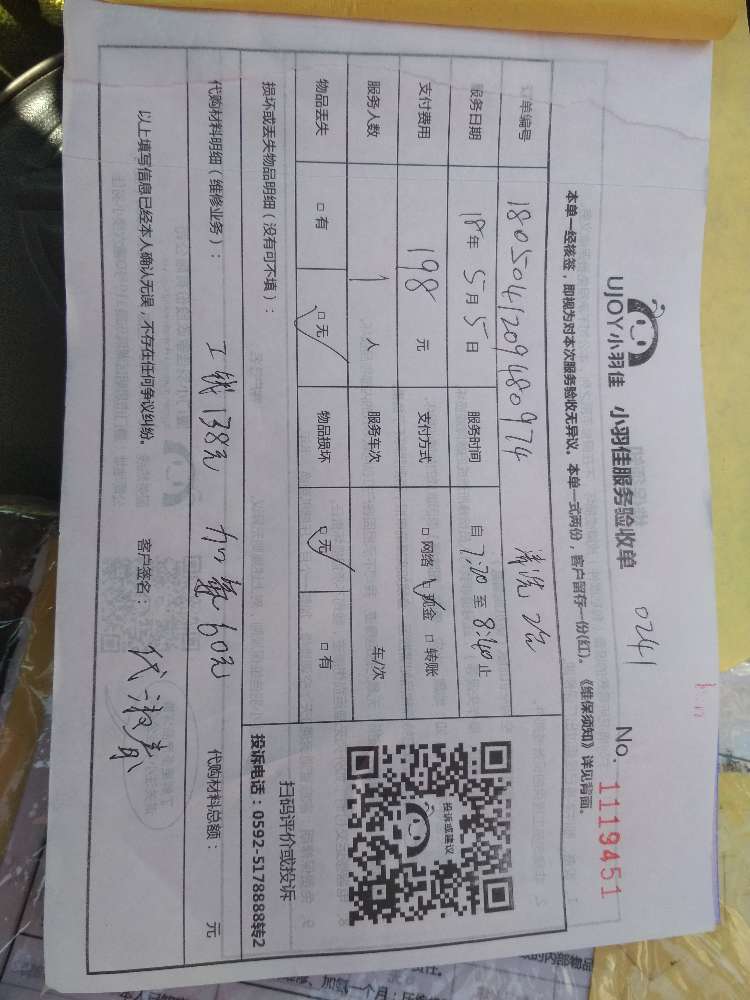 UJOY小羽佳 小羽佳服务验收单 0241 No. 1119451
本单一经核签，即视为对本次服务验收无异议。本单一式两份，客户留存一份(红)。《维保须知》详见背面。
订单编号 1805041209480974 清洗2台
服务日期 18年5月5日 服务时间 自7:20至8:40止
支付费用 198元 支付方式 □网络 ☑现金 □转账
服务人数 1人 服务车次 车/次
物品丢失 □有 ☑无 物品损坏 ☑无 □有
损坏或丢失物品明细（没有可不填）：
扫码评价或投诉
投诉电话：0592-5178888转2
投诉或建议
代购材料明细（维修业务）： 工钱138元 加氨60元 代购材料总额： 元
以上填写信息已经本人确认无误，不存在任何争议纠纷。 客户签名：